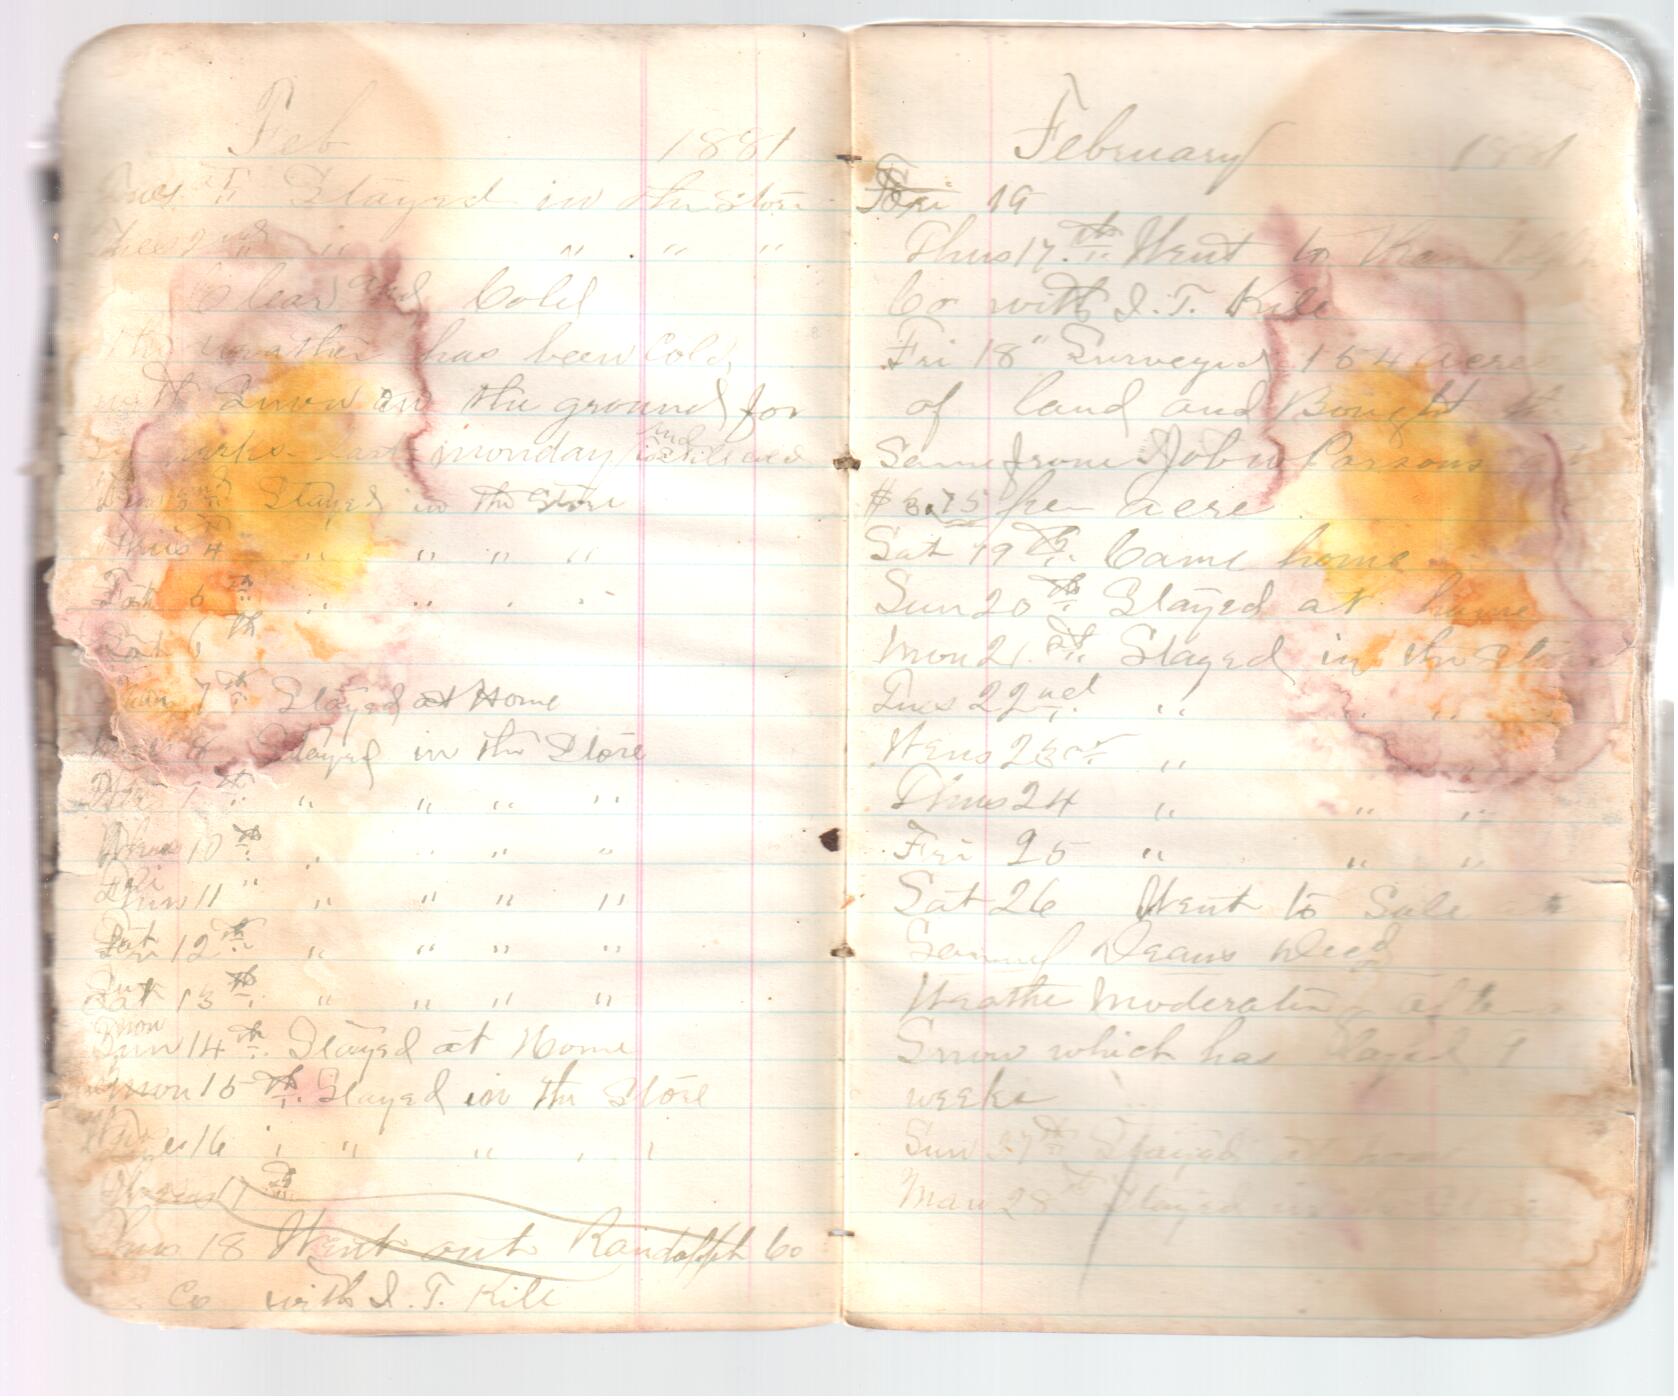 Feb 1881
Tues 1st Stayed in the Store
Wens 2nd " " " "
Clear and Cold
The weather has been Cold,
with Snow on the ground for
weeks. last monday and
Stayed in the Store
Thus 4 " " " "
6th " " . .
Sat 6 th
Sun 7th Stayed at Home
8 Stayed in the Store
th " " " "
10th " " " "
Fri
Thus 11 " " " " "
Sat
Fri 12th " " " "
Sun
Sat 13th " " " "
Mon
Sun 14th Stayed at Home
Mon 15th. Stayed in the Store
16 " " " "
17th
Thus 18 Went out Randolph Co
Co with I. T. Kile
February 1881
Fri 19
Thus 17.th Went to Randolph
Co with I. T. Kile
Fri 18" Surveyed 154 acres
of land and Bought
Same from John Parsons at
$3.75 per acre
Sat 19th. Came home
Sun 20th Stayed at home
Mon 21.st Stayed in the Store
Tues 22nd " " "
Wens 23rd "
Thus 24 " " "
Fri 25 " " "
Sat 26 Went to Sale at
Samuel Deans Decd
Weathe Moderating after
Snow which has Stayed 9
weeks
Sun 27th Stayed at home
Mon 28th Stayed in the Store